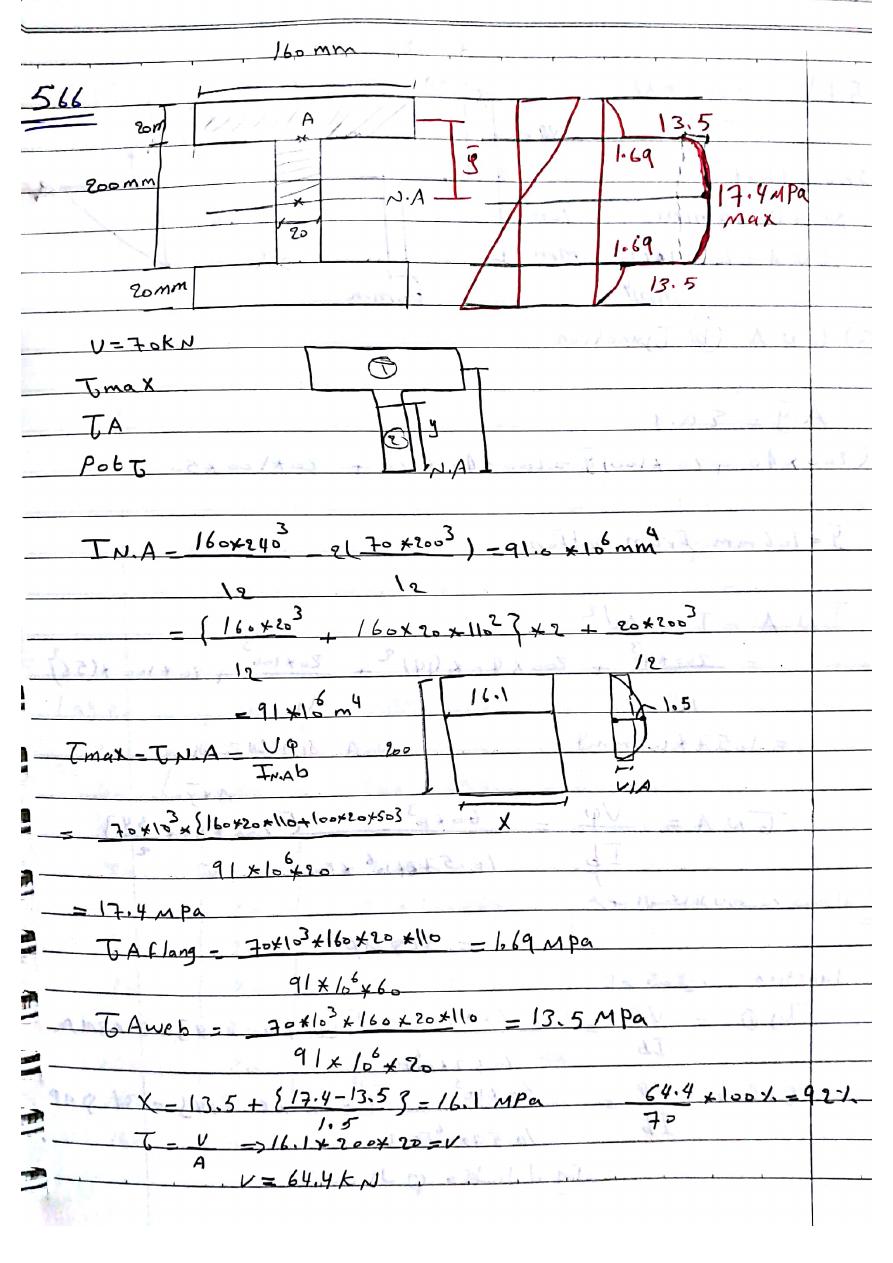 160 mm
566
20m
A
200mm
ȳ
N.A
20
20mm
13.5
1.69
17.4 MPa
Max
1.69
13.5
V=70kN
τmax
τA
Pot τ
1
2
y
N.A
I N.A = 160×240³/12 - 2(70×200³/12) = 91.0 ×10⁶ mm⁴
= {160×20³/12 + 160×20×110²}×2 + 20×200³/12
= 91×10⁶ m⁴
16.1
1.5
200
V/A
X
τmax = τN.A = VQ/I N.A b
= 70×10³×{160×20×110+100×20×50}/91×10⁶×20
= 17.4 MPa
τA flang = 70×10³×160×20×110/91×10⁶×60 = 1.69 MPa
τA web = 70×10³×160×20×110/91×10⁶×20 = 13.5 MPa
X = 13.5 + {17.4-13.5/1.5} = 16.1 MPa
64.4/70 ×100% = 92%
τ = V/A => 16.1×200×20 = V
V = 64.4 kN